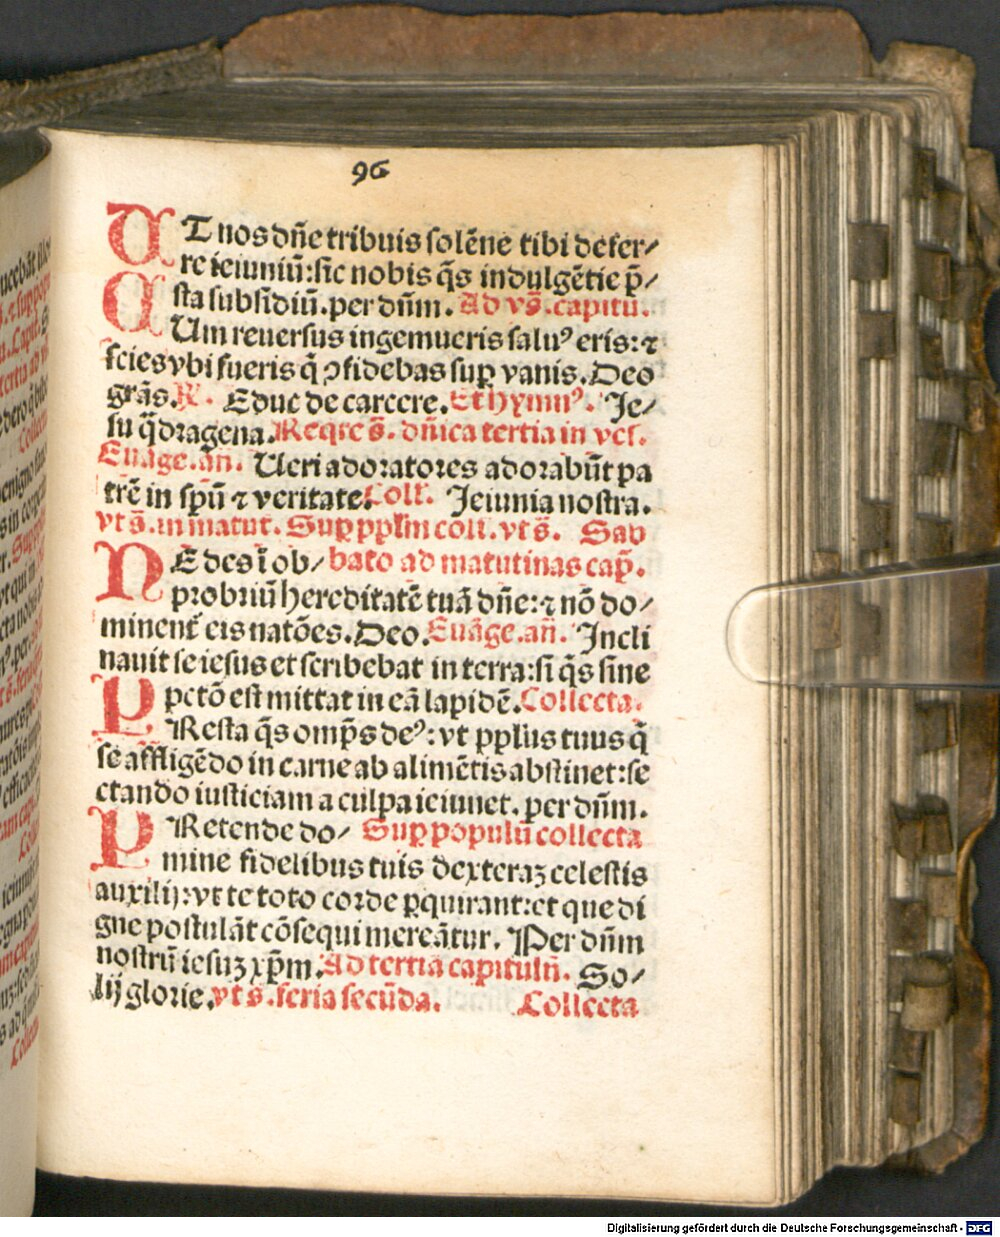 96
UT nos dñe tribuis solēne tibi defer/
re ieiuniū:sic nobis q̄s indulgētie p̄/
sta subsidiū.per dn̄m. Ad vs̄.capitu.
CUm reuersus ingemueris saluꝰ eris:⁊
scies vbi fueris q̄ ꝯfidebas suꝑ vanis.Deo
grās.℟. Educ de carcere.Et hymnꝰ. Je/
su q̄dragena.Reqre s̄. dn̄ica tertia in ves.
Euāge.an̄. Ueri adoratores adorabūt pa
trē in spū ⁊ veritate.Coll. Jeiunia nostra.
vt s̄.in matut. Suꝑ pplm coll.vt s̄. Sab
NE des ī ob/ bato ad matutinas cap̄.
probriū hereditatē tuā dn̄e:⁊ nō do/
minent̄ eis natōes.Deo.Euāge.an̄. Incli
nauit se iesus et scribebat in terra:si q̄s sine
pctō est mittat in eā lapidē.Collecta.
PResta q̄s omp̄s deꝰ:vt pplus tuus q̄
se affligēdo in carne ab alimētis abstinet:se
ctando iusticiam a culpa ieiunet.per dn̄m.
PRetende do/ Suꝑ populū collecta
mine fidelibus tuis dexteraꝫ celestis
auxilij:vt te toto corde ꝑquirant:et que di
gne postulāt cōsequi mereātur. Per dn̄m
nostrū iesuꝫ xp̄m.Ad tertia capitulū. So/
lij glorie.vt s.feria secūda. Collecta
Digitalisierung gefördert durch die Deutsche Forschungsgemeinschaft - DFG